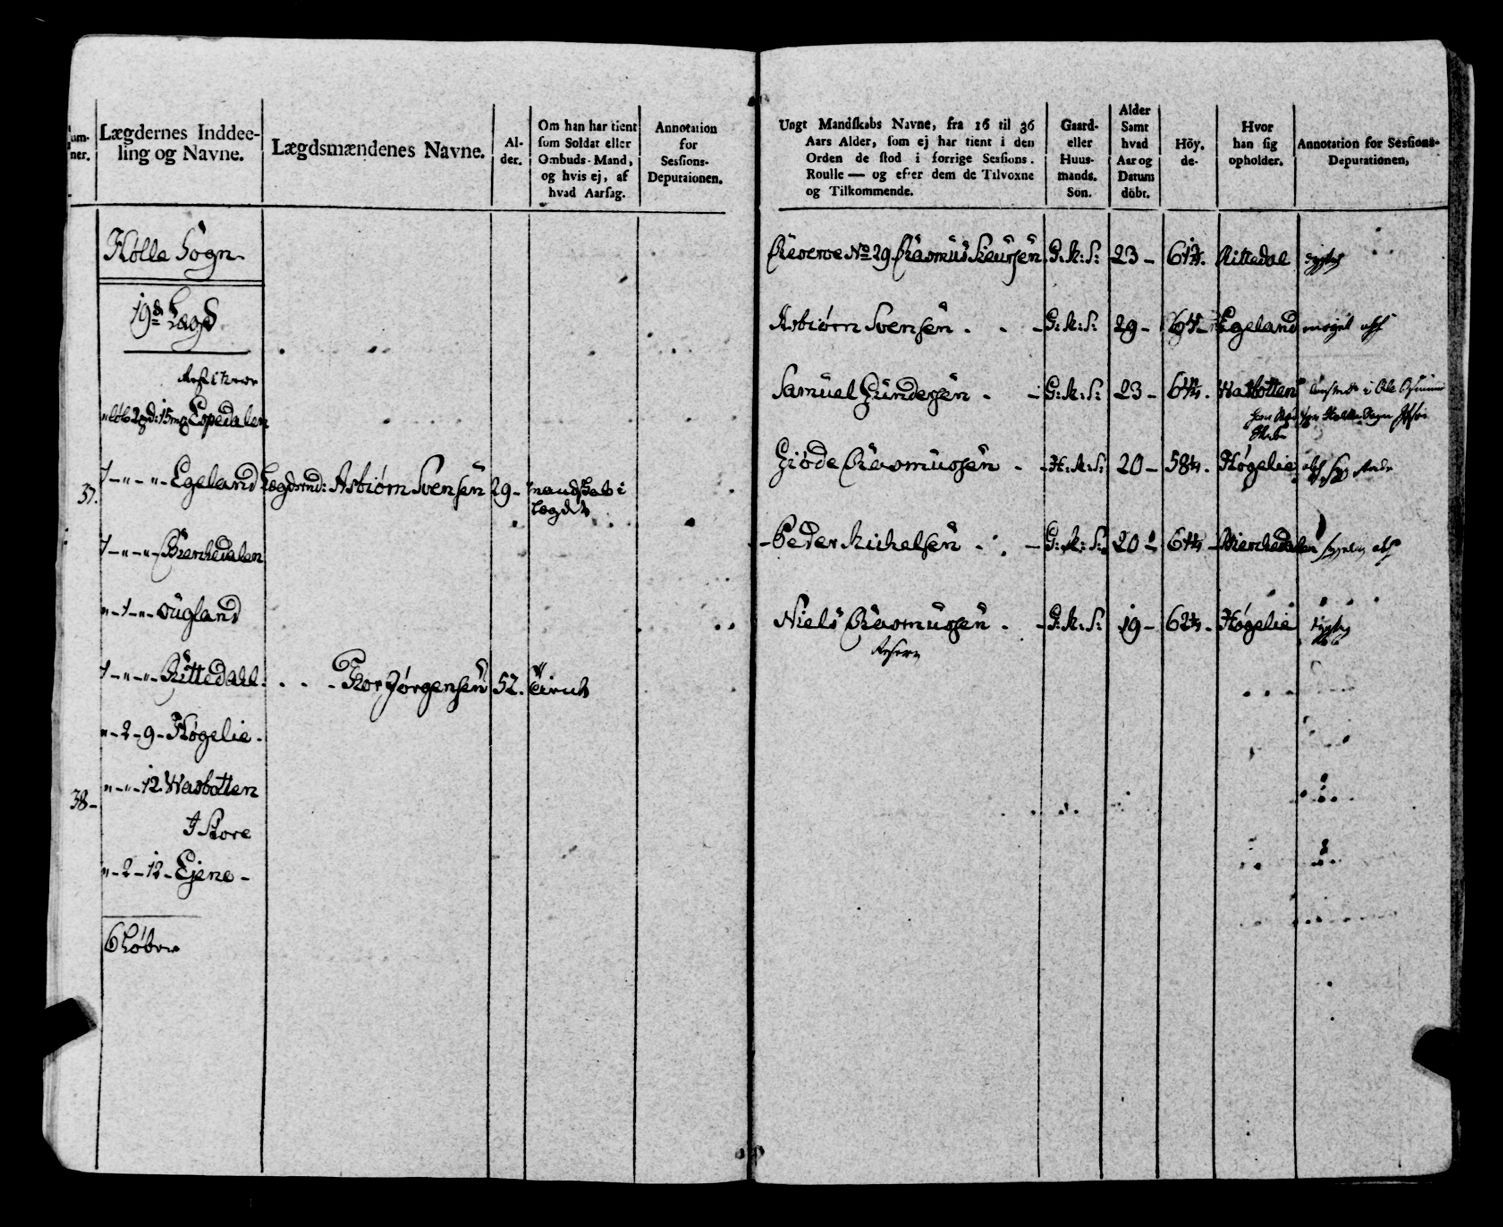 um-
ner.
Lægdernes Inddee-
ling og Navne.
Lægdsmændenes Navne.
Al-
der.
Om han har tient
som Soldat eller
Ombuds-Mand,
og hvis ej, af
hvad Aarsag.
Annotation
for
Sessions-
Deputaionen.
Hølle Sogn
19de Lægd
Espedalen
37. 1 - " - " - Egeland Lægdsmd: Asbiørn Svensen 29 - mandskab i
Lægdet
1 - " - " - Bierchedalen
" - 1 - " -Ougland
1 - " - " - Rittedall . . . Thor Jørgensen 52.
" - 2 - 9 - Høgelie -
38 - " - " - 12. Wasbotten
I Store
" - 2 - 12 - Ejene -
6 Løber
Ungt Mandskabs Navne, fra 16 til 36
Aars Alder, som ej har tient i den
Orden de stod i forrige Sessions.
Roulle — og efter dem de Tilvoxne
og Tilkommende.
Gaard-
eller
Huus-
mands.
Sön.
Alder
Samt
hvad
Aar og
Datum
döbt.
Höy.
de-
Hvor
han sig
opholder.
Annotation for Sessions-
Deputationen,
Reserve No 29 Rasmus Siursen G: M: S: 23 - Rittedal dygtig
Asbiørn Svensen . . - G: M: S: 29 - 64 - Egeland
Samuel Gundersen . - G: M: S: 23 - 64 Wasbotten
Giøde Rasmussen . - H: M: S: 20 - 58 Høgelie
- Peder Michelsen - . - G: M: S: 20 - 64 - Bierchedalen
Niels Rasmussen . - G: M: S: 19 - 62 - Høgelie dygtig
Reserve